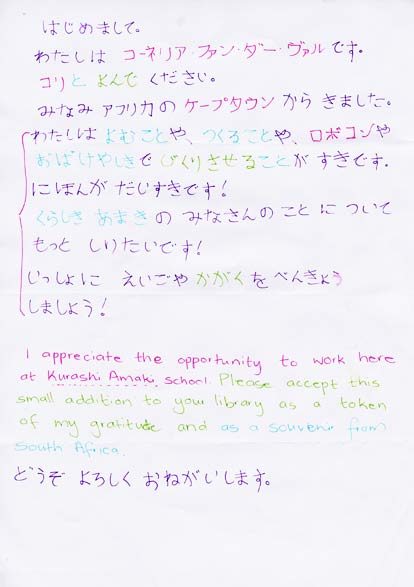 はじめまして。
わたしは コーネリア・ファン・ダー・ヴァルです。
コリと よんで ください。
みなみ アフリカの ケープタウン から きました。
わたしは よむことや、つくることや、ロボコンや
おばけやしきで びくりさせることが すきです.
にほんが だいすきです!
くらしき あまきの みなさんのこと に ついて
もっと しりたいです!
じっしょに えいごや かがくを べんきょう
しましょう!
I appreciate the opportunity to work here
at Kurashi Amaki school. Please accept this
small addition to your library as a token
of my gratitude and as a souvenir from
South Africa.
どうぞ よろしく おねがいします。